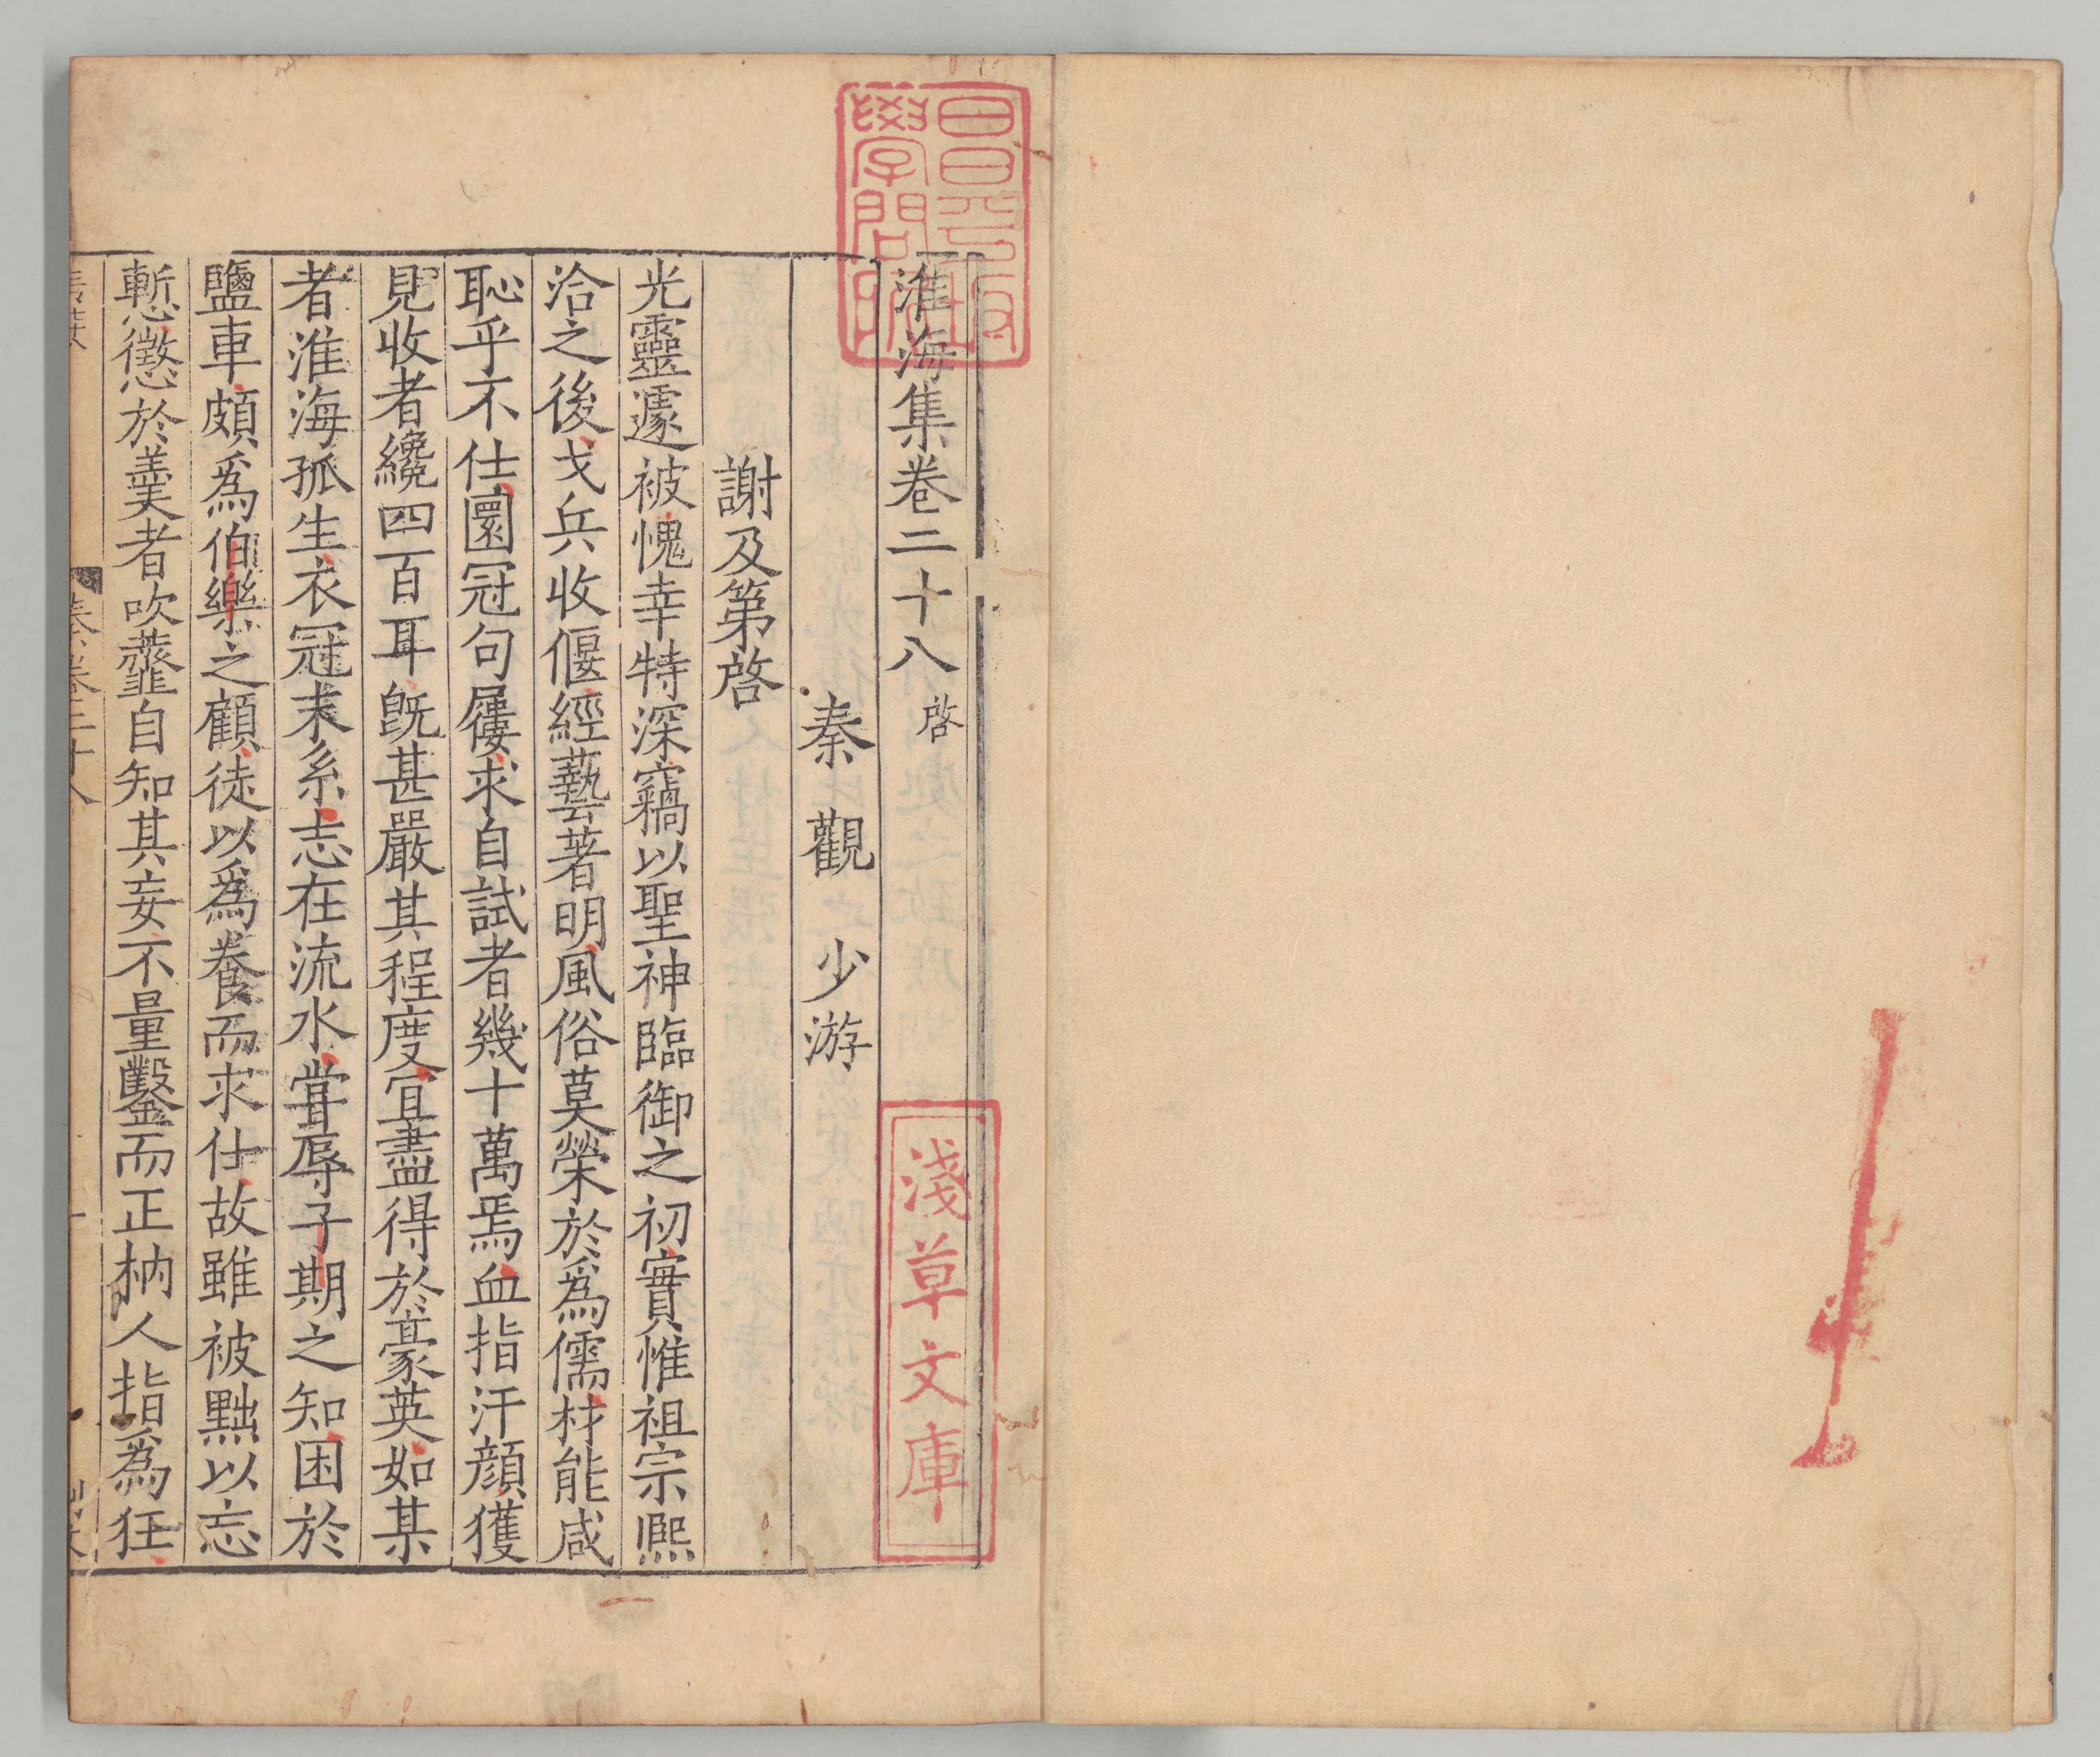 淮海集卷二十八 啓
秦觀少游
謝及第啓
光靈遽被愧幸特深竊以聖神臨御之初實惟祖宗熈
洽之後戈兵收偃經藝著明風俗莫榮於爲儒材能咸
恥乎不仕圜冠句屨求自試者幾十萬焉血指汗顔獲
見收者纔四百耳旣甚嚴其程度宜盡得於豪英如某
者淮海孤生衣冠末系志在流水嘗辱子期之知困於
鹽車頗爲伯樂之顧徒以爲養而求仕故雖被黜以忘
慙懲於羹者吹虀自知其妄不量鑿而正枘人指爲狂
昌平坂
學問所
淺草文庫